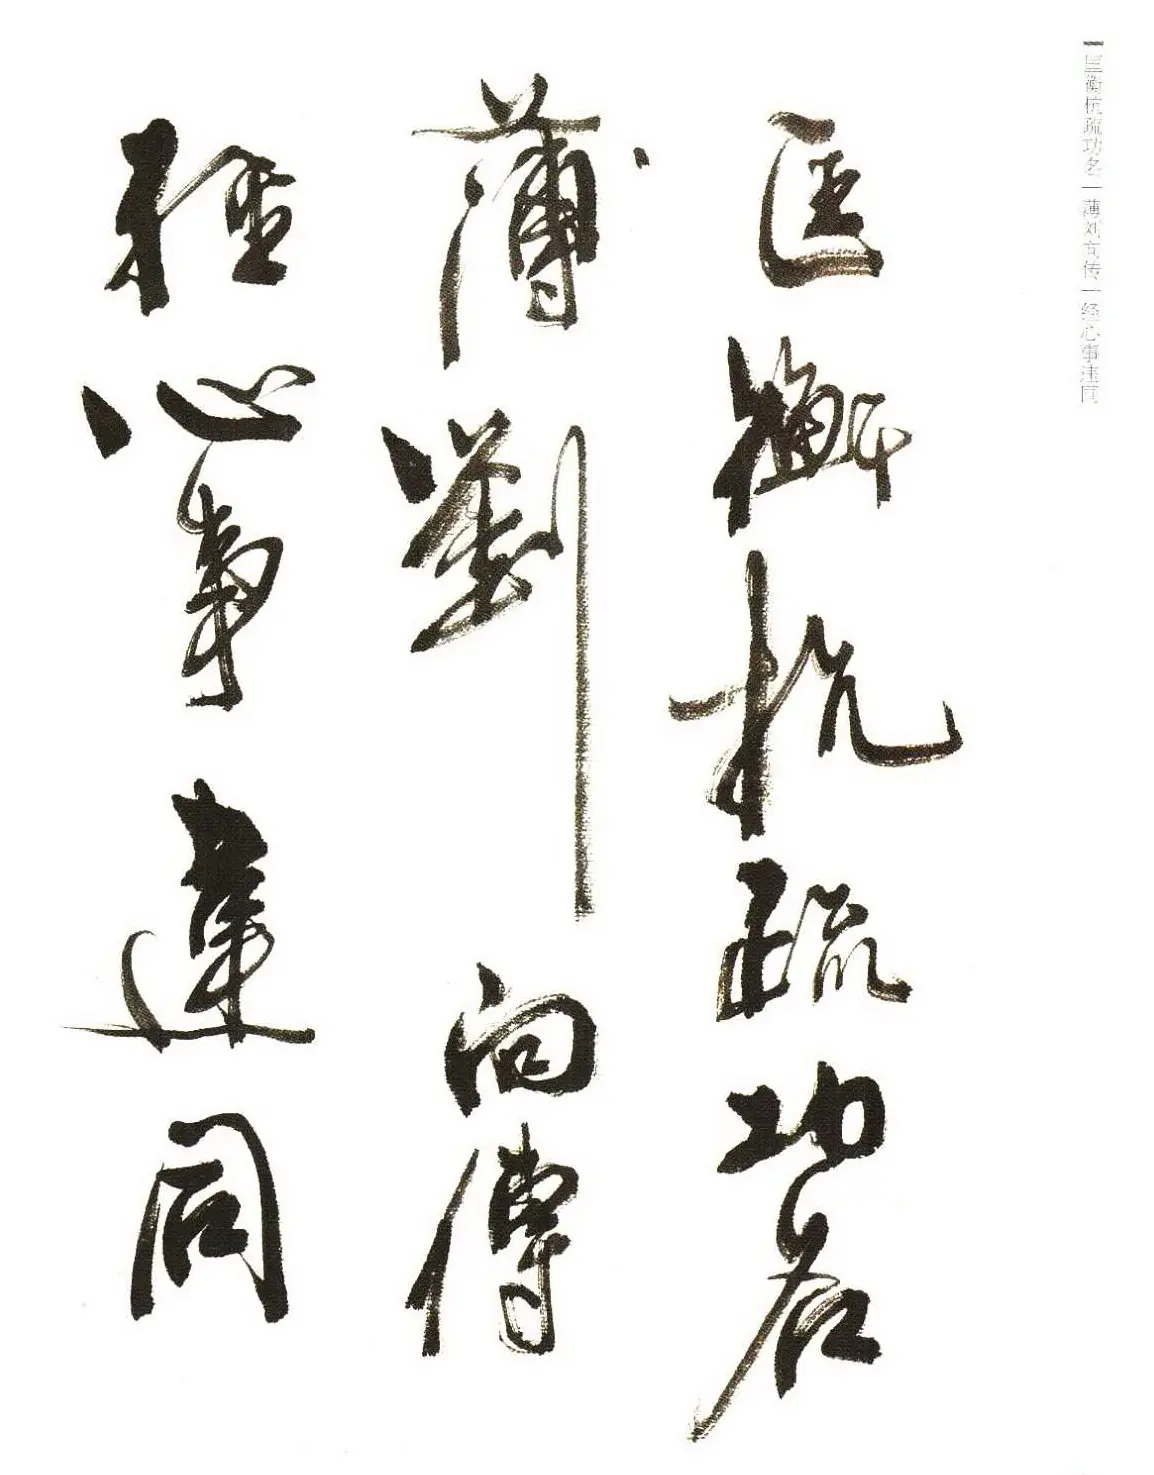 匡衡抗疏功名|薄刘向传|经心事违同
匡衡抗疏功名
薄劉向傳
經心事違同